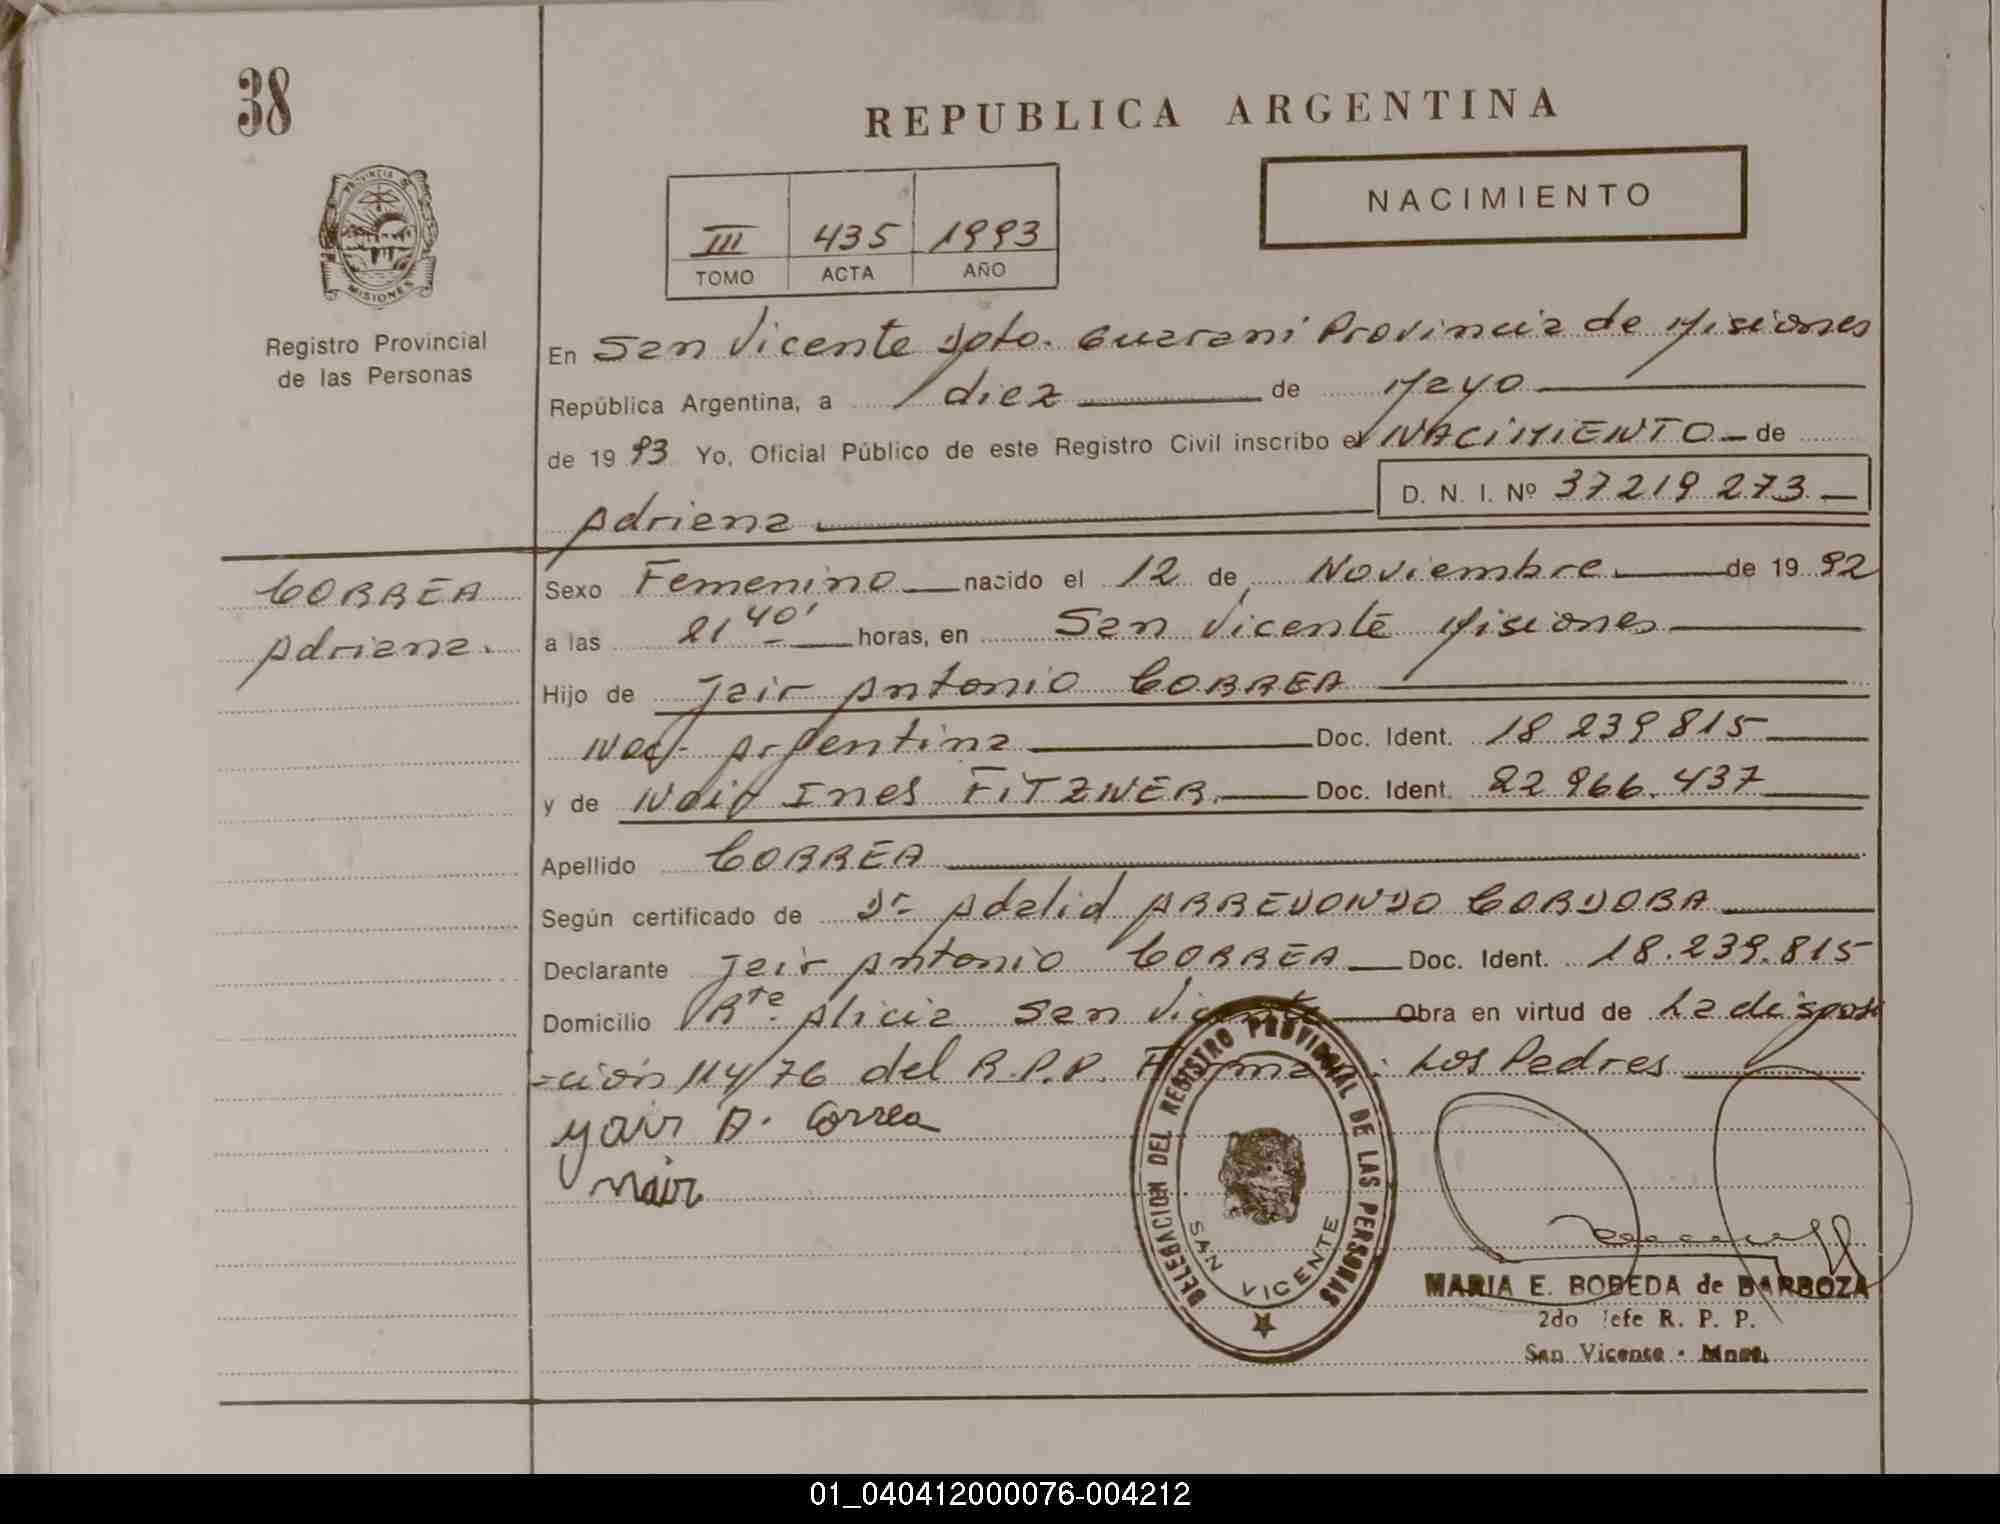 38
REPUBLICA ARGENTINA
PROVINCIA DE
MISIONES
Registro Provincial
de las Personas
NACIMIENTO
III 435 1993
TOMO ACTA AÑO
En San Vicente Dpto. Guarani Provincia de Misiones
República Argentina, a diez de Mayo
de 1993 Yo, Oficial Público de este Registro Civil inscribo el NACIMIENTO de
D. N. I. Nº 37219273
Adriana
CORREA
Adriana.
Sexo Femenino nacido el 12 de Noviembre de 1992
a las 21 40' horas, en San Vicente Misiones
Hijo de Jair Antonio CORREA
Nac- Argentina Doc. Ident. 18 239 815
y de Nair Ines FITZNER Doc. Ident. 22 966.437
Apellido CORREA
Según certificado de Dr Adalid ARREDONDO CORDOBA
Declarante Jair Antonio CORREA Doc. Ident. 18.239.815
Domicilio Rte. Alicia San Vicente Obra en virtud de La disposi
=ción 114/76 del R.P.P. Firman: Los Padres
yair A. Correa
Nair
DELEGACION DEL REGISTRO PROVINCIAL DE LAS PERSONAS
SAN VICENTE
MARIA E. BOBEDA de BARBOZA
2do Jefe R. P. P.
San Vicente - Mnes.
01_040412000076-004212